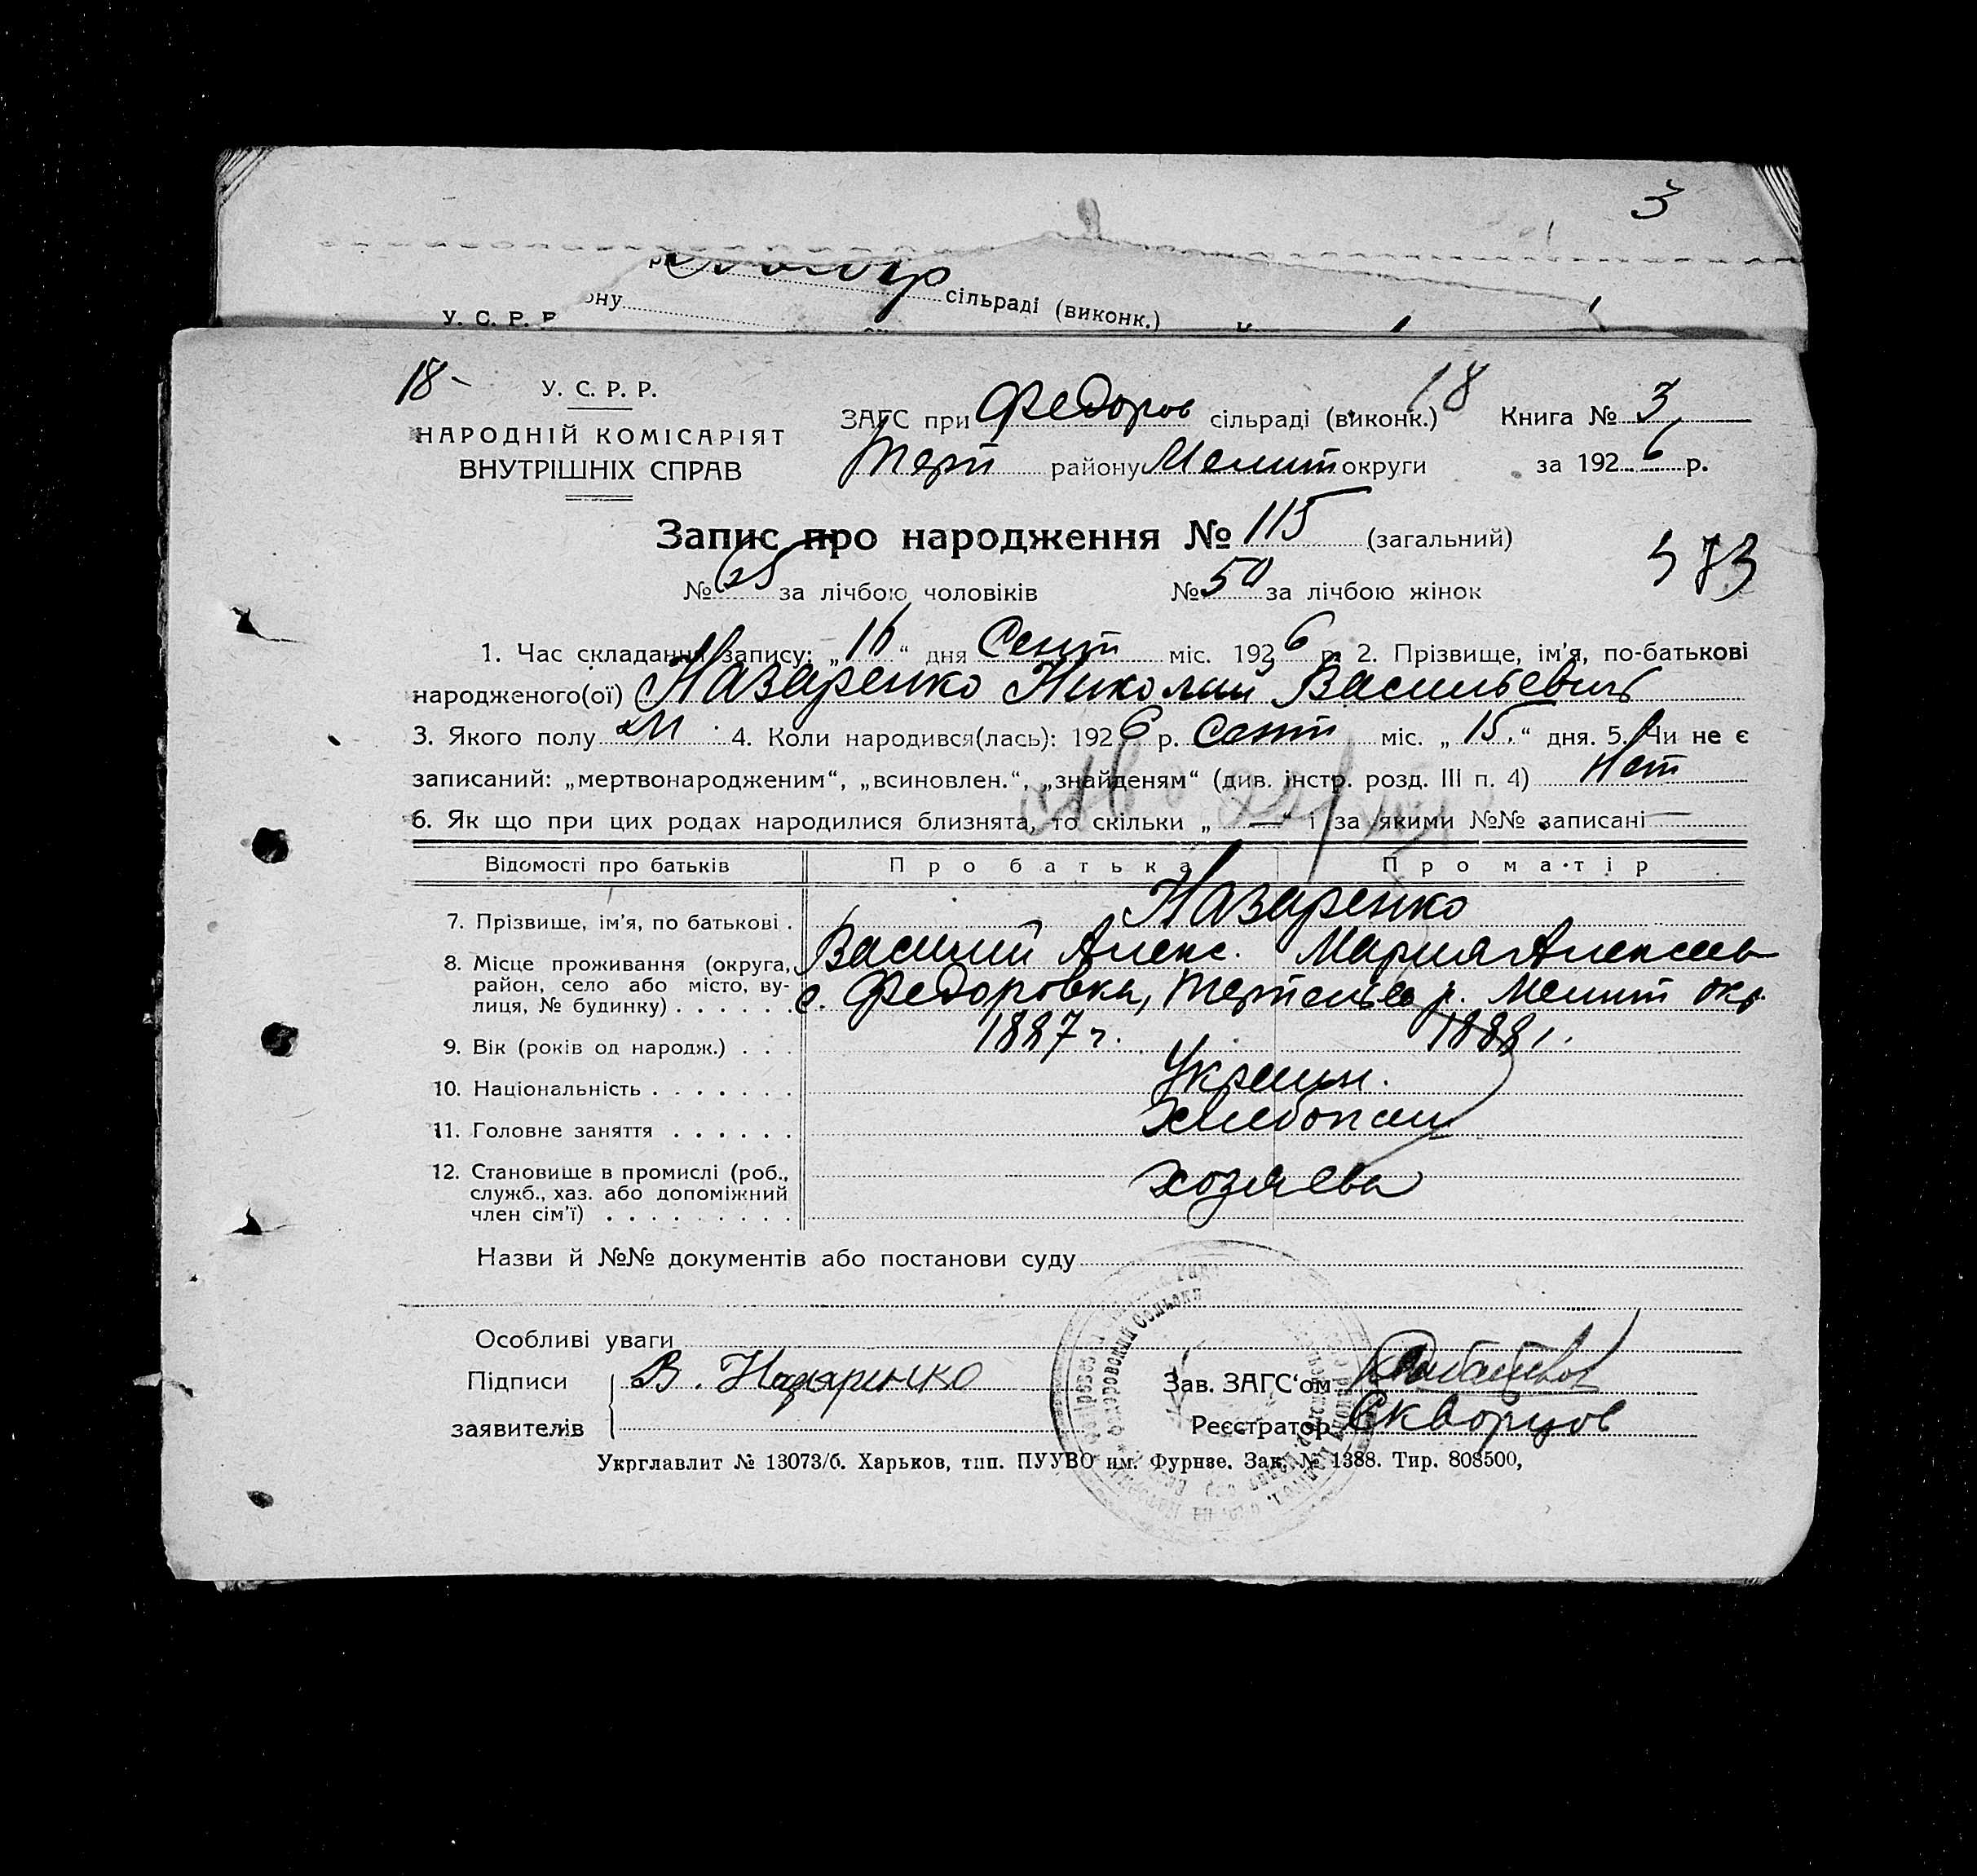 3
ону сільраді (виконк.)
У. С. Р. Р
18-
У. С. Р. Р.
НАРОДНІЙ КОМІСАРІЯТ
ВНУТРІШНІХ СПРАВ
ЗАГС при Федоров сільраді (виконк.) 18 Книга № 3
Терп району Мелит округи за 1926 р.
Запис про народження № 115 (загальний)
№ 65 за лічбою чоловіків № 50 за лічбою жінок
573
1. Час складання запису: „16“ дня Сент міс. 1926 р. 2. Прізвище, ім’я, по-батькові
народженого(ої) Назаренко Николай Васильевич
3. Якого полу М 4. Коли народився(лась): 1926 р. Сент міс. „15.“ дня. 5. Чи не є
записаний: „мертвонародженим“, „всиновлен.“, „знайденям“ (див. інстр. розд. III п. 4) Нет
6. Як що при цих родах народилися близнята, то скільки „—“ і за якими №№ записані —
Відомості про батьків Про батька Про матір
7. Прізвище, ім’я, по батькові . Назаренко
Василий Алекс. Мария Алексеев
8. Місце проживання (округа,
район, село або місто, ву-
лиця, № будинку) . . . . . . с. Федоровка, Терпеньев р. Мелит окр.
9. Вік (років од народж.) . . . 1887 г. 1888 г.
10. Національність . . . . . . . Украин.
11. Головне заняття . . . . . . Хлебопаш
12. Становище в промислі (роб.,
служб., хаз. або допоміжний
член сім’ї) . . . . . . . . . хозяева
Назви й №№ документів або постанови суду
Особливі уваги
Підписи В. Назаренко
заявителів
Зав. ЗАГС‘ом
Реєстратор Скворцов
Федоровский Сельский
Укрглавлит № 13073/б. Харьков, тип. ПУУВО им. Фурнзе. Зак. № 1388. Тир. 808500,